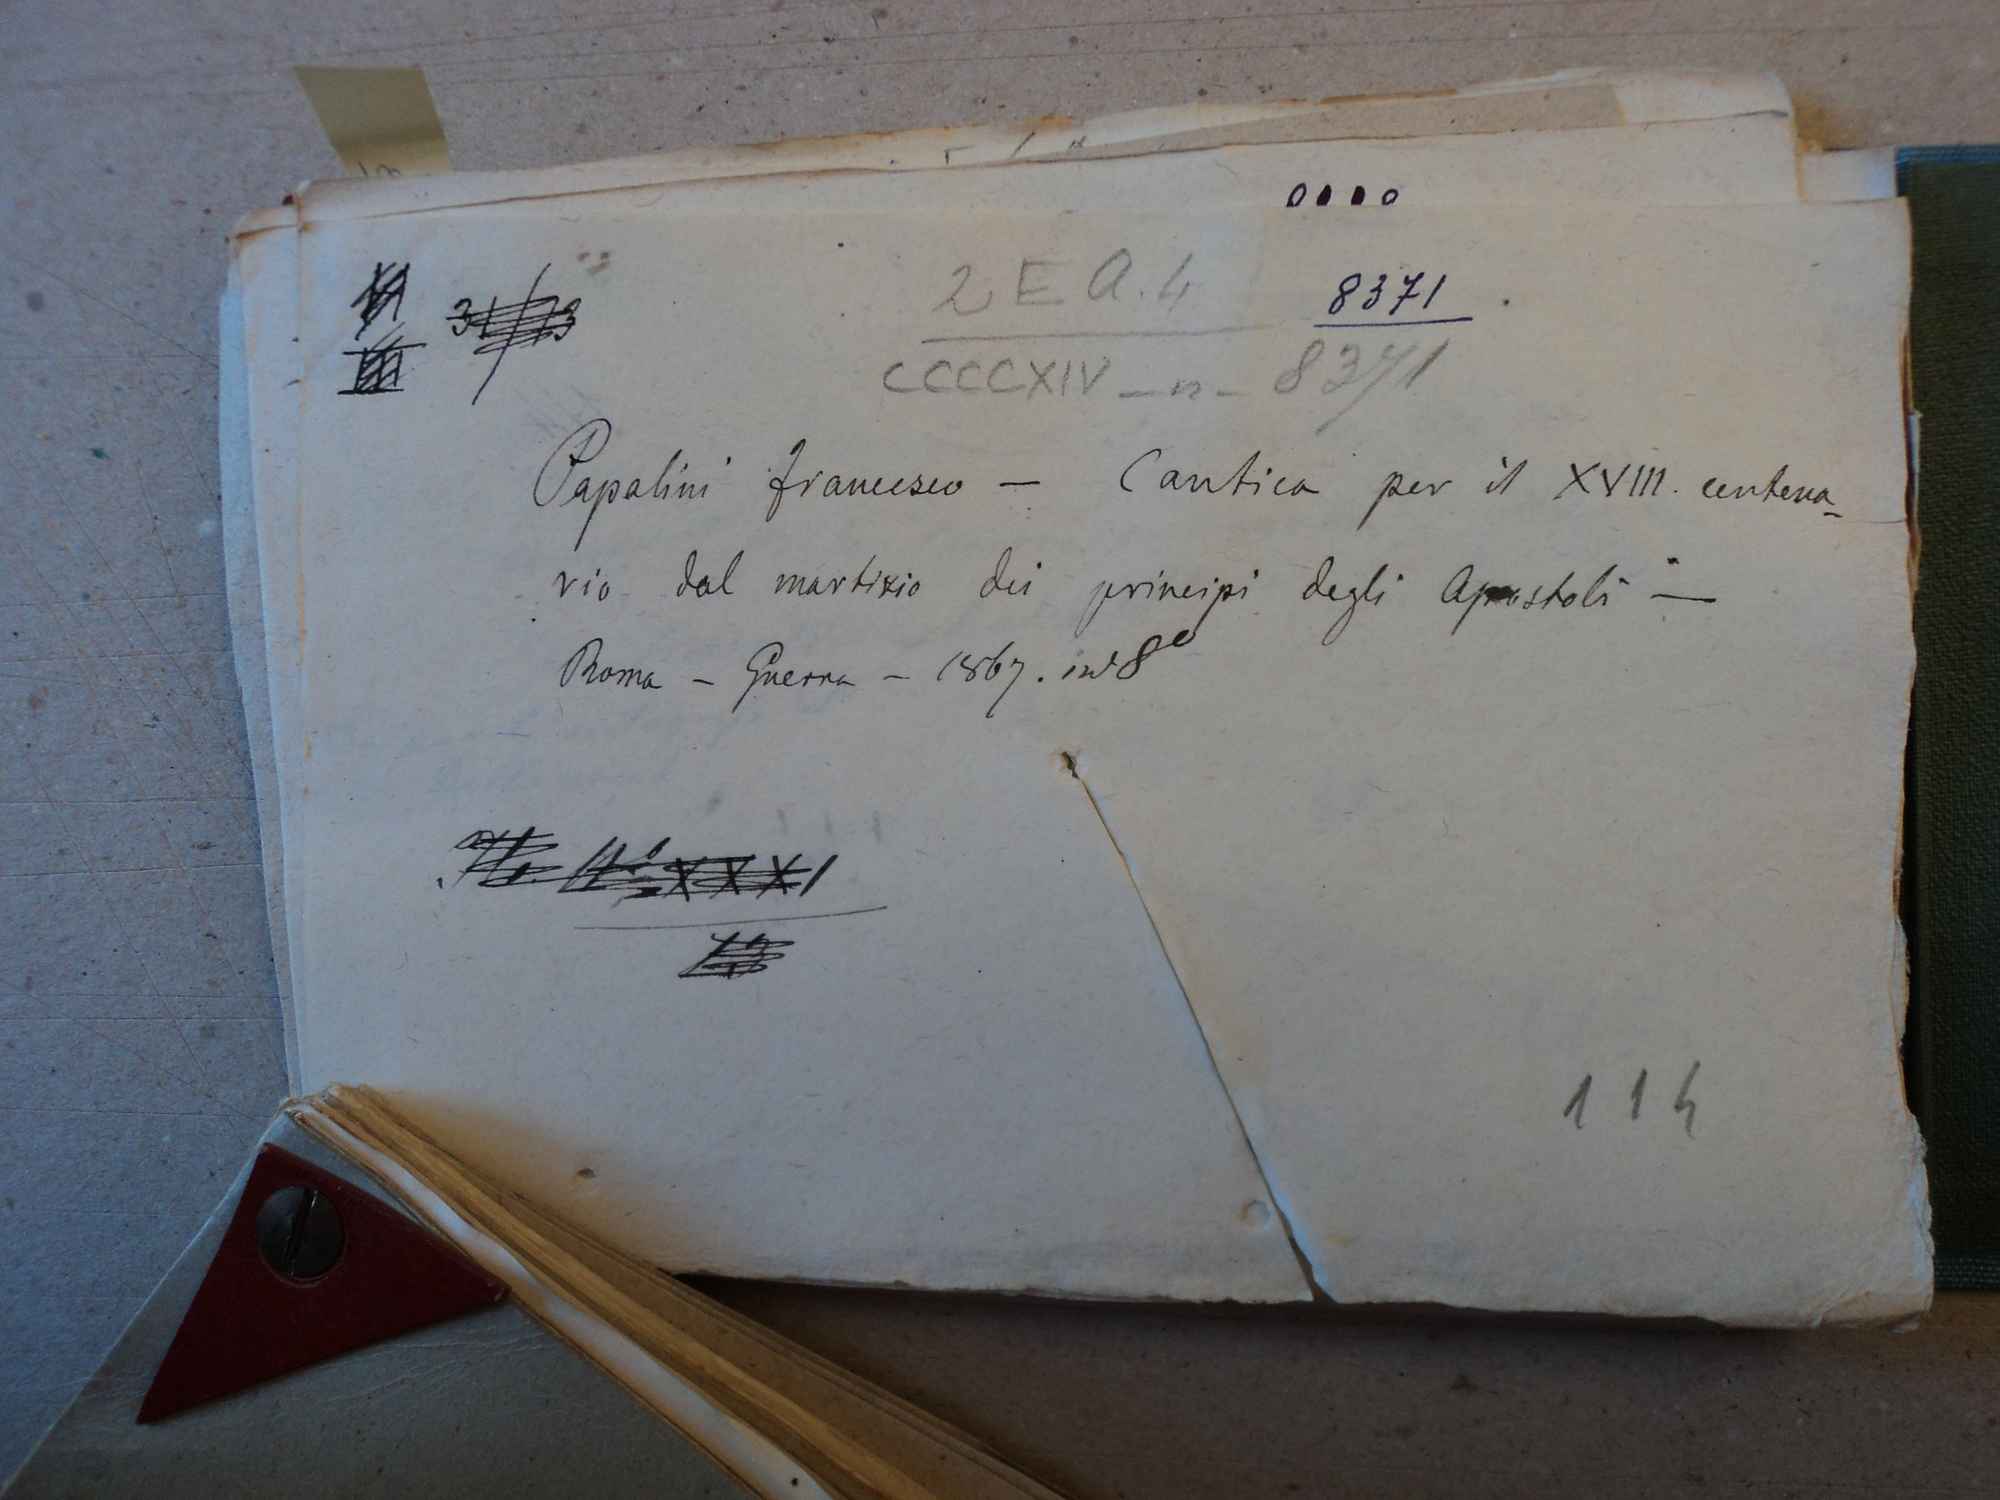 2 E A. 4
8371
CCCCXIV - n - 8371
31/13
Papalini francesco — Cantica per il XVIII. centena-
rio dal martirio dei principi degli Apostoli —
Roma - Guerra - 1867. in 8°
XXXI
13
114